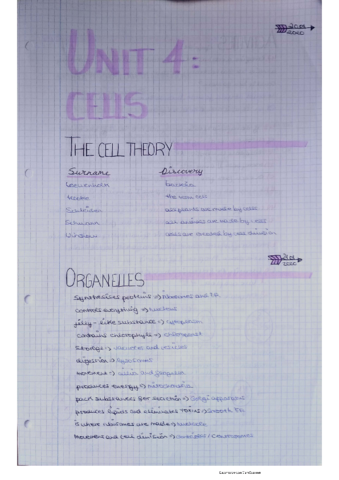 UNIT 4:
CELLS
THE CELL THEORY
Surname Discovery
Leeuwenhoek bacteria
Hooke
Schleiden all plants are made by cells
Schwann all animals are made by cells
Virchow cells are created by cell division
ORGANELLES
synthesises proteins → ribosomes and ER
controls everything → nucleus
jelly-like substance → cytoplasm
contains chlorophyll → chloroplast
storage → vacuole and vesicles
digestion → lysosomes
movement → cilia and flagellum
produces energy → mitochondria
pack substances for secretion → Golgi apparatus
produces lipids and eliminates toxins → smooth ER
is where ribosomes are made → nucleolus
Movement and cell division → centrioles / centrosomes